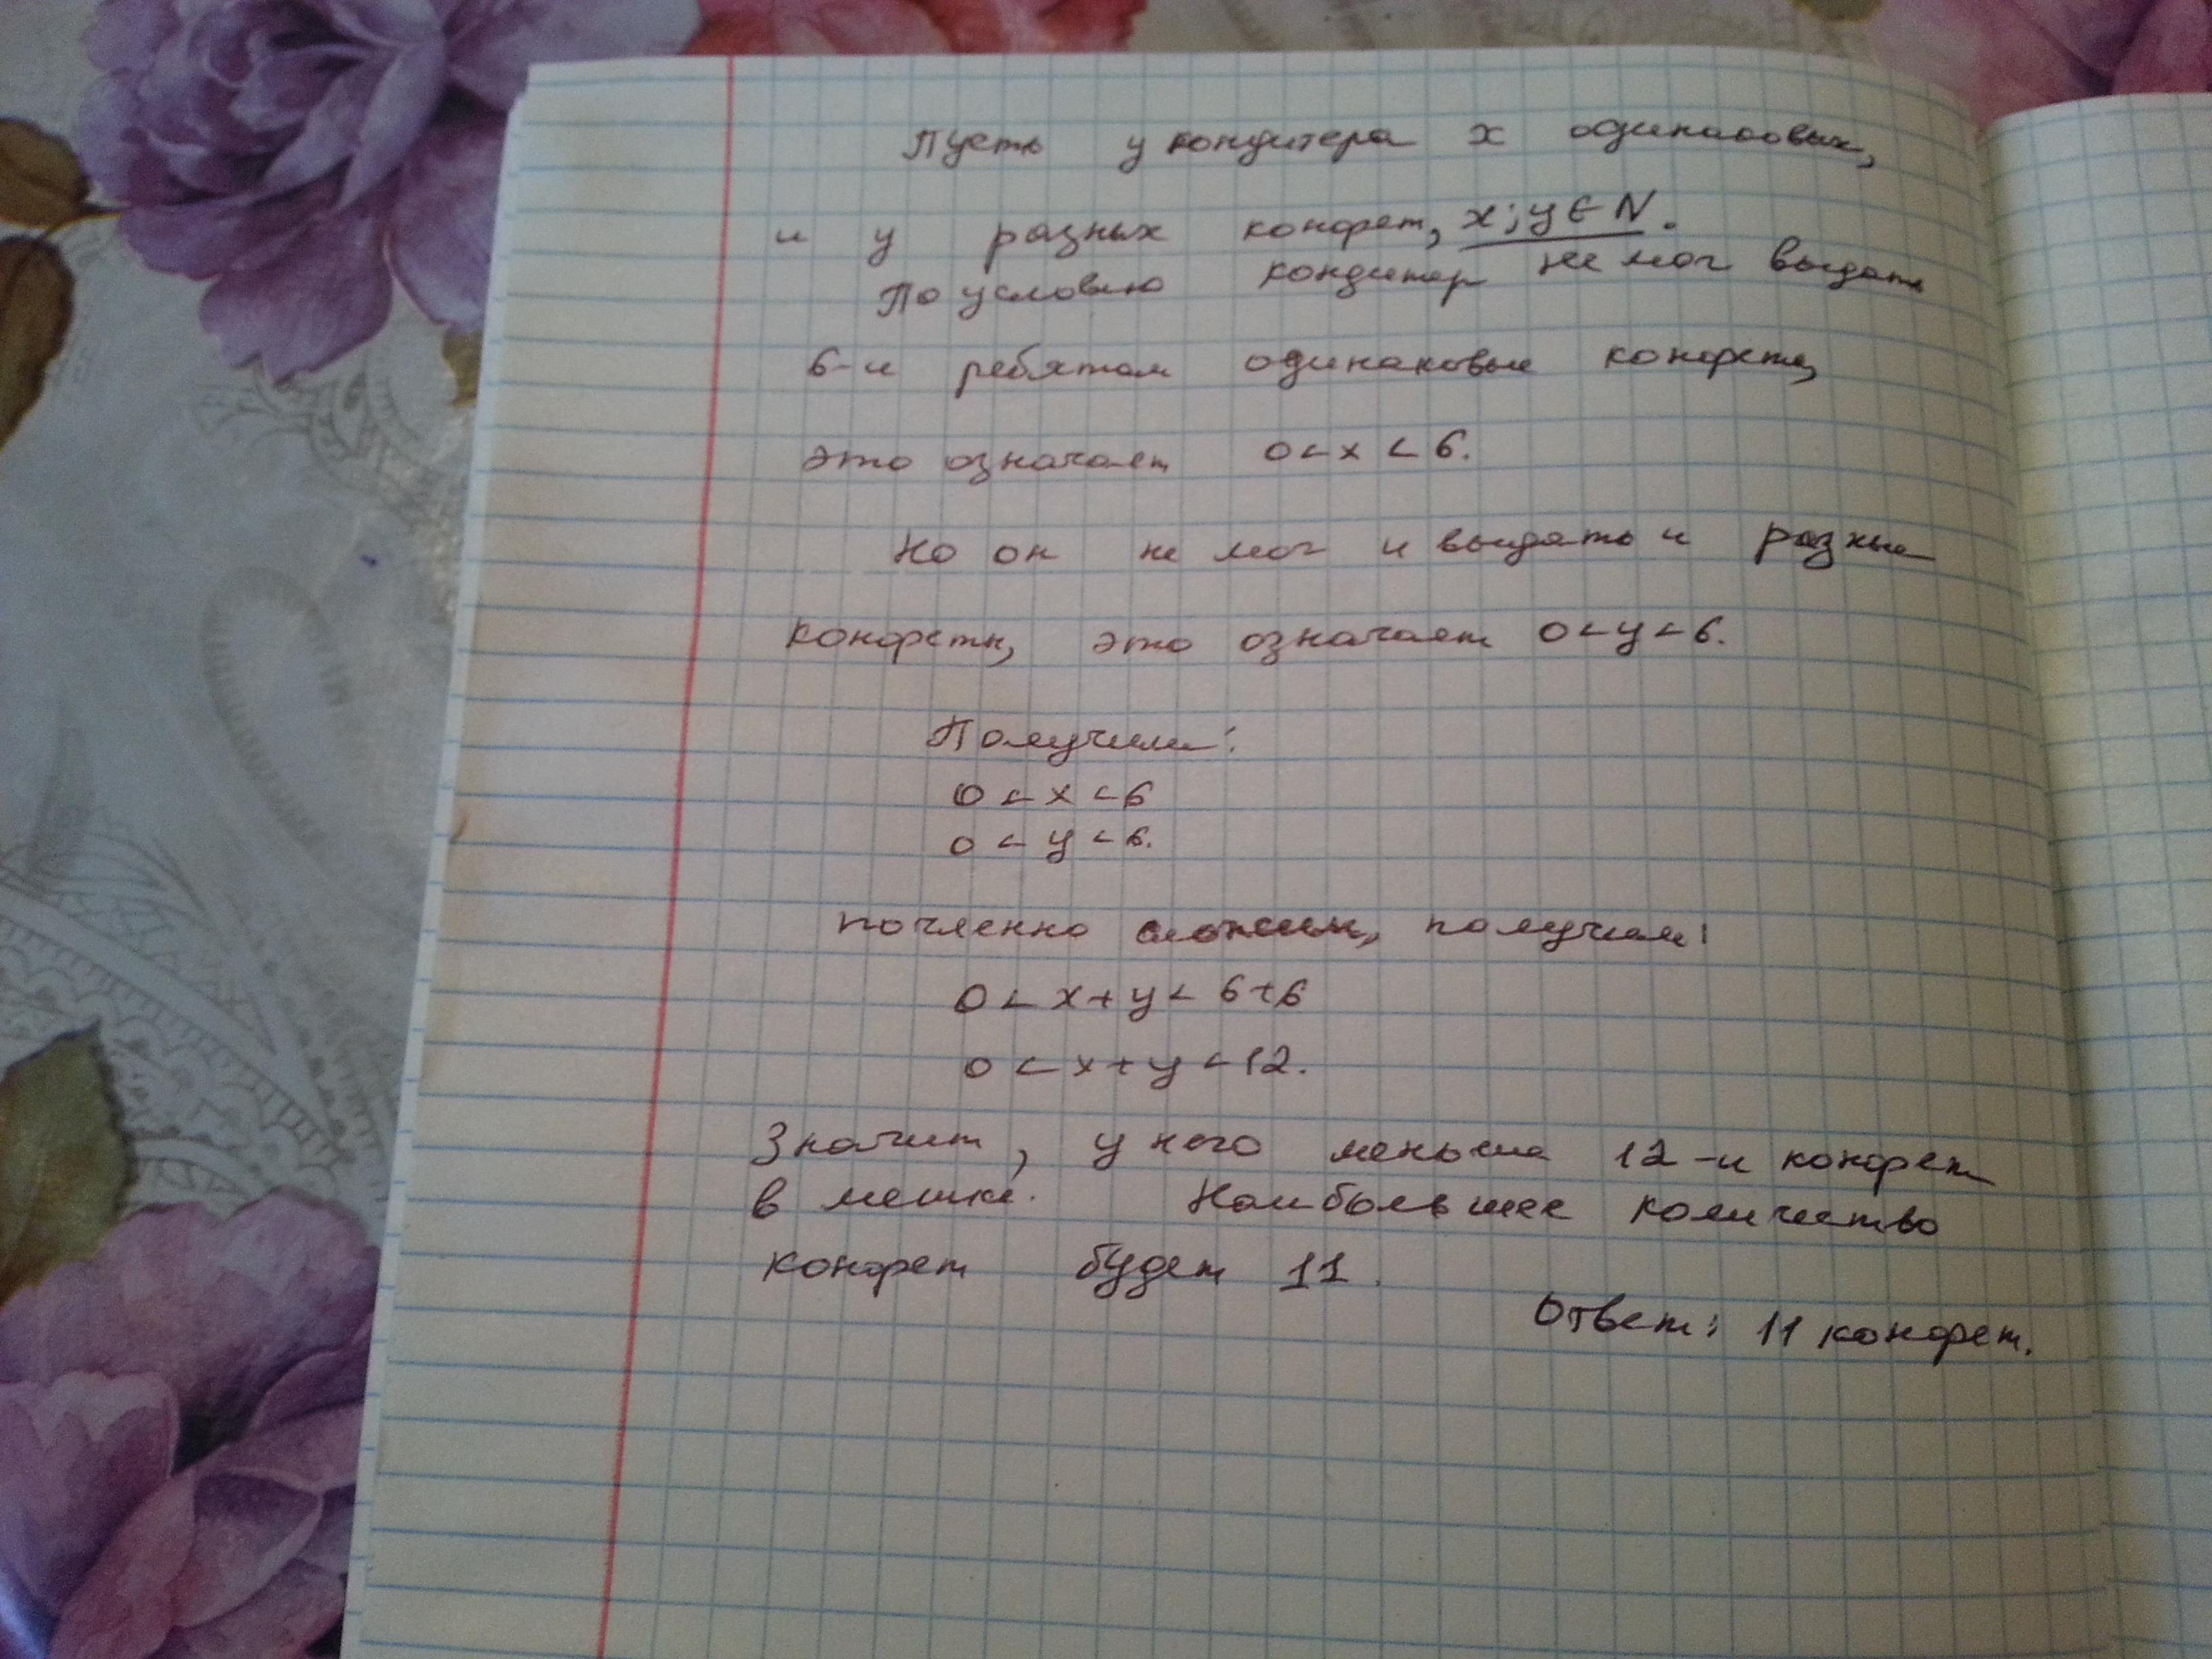 Пусть у кондитера x одинаковых,
и y разных конфет, x; y ∈ N.
По условию кондитер не мог выдать
6-и ребятам одинаковые конфеты,
это означает 0 < x < 6.
Но он не мог и выдать и разные
конфеты, это означает 0 < y < 6.
Получим:
0 < x < 6
0 < y < 6.
почленно сложим, получим:
0 < x + y < 6 + 6
0 < x + y < 12.
Значит, у него меньше 12-и конфет
в мешке. Наибольшее количество
конфет будет 11.
Ответ: 11 конфет.